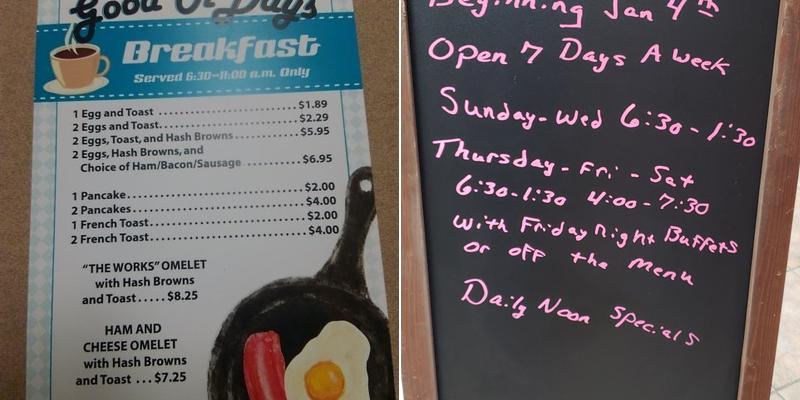 Good Ol' Days
Breakfast
Served 6:30-11:00 a.m. Only
1 Egg and Toast ........................ $1.89
2 Eggs and Toast........................ $2.29
2 Eggs, Toast, and Hash Browns............ $5.95
2 Eggs, Hash Browns, and
Choice of Ham/Bacon/Sausage ............ $6.95
1 Pancake........................ $2.00
2 Pancakes........................ $4.00
1 French Toast........................ $2.00
2 French Toast........................ $4.00
"THE WORKS" OMELET
with Hash Browns
and Toast ..... $8.25
HAM AND
CHEESE OMELET
with Hash Browns
and Toast ... $7.25
Beginning Jan 4th
Open 7 Days A Week
Sunday-Wed 6:30-1:30
Thursday-Fri-Sat
6:30-1:30 4:00-7:30
with Friday night Buffets
or off the menu
Daily Noon Specials